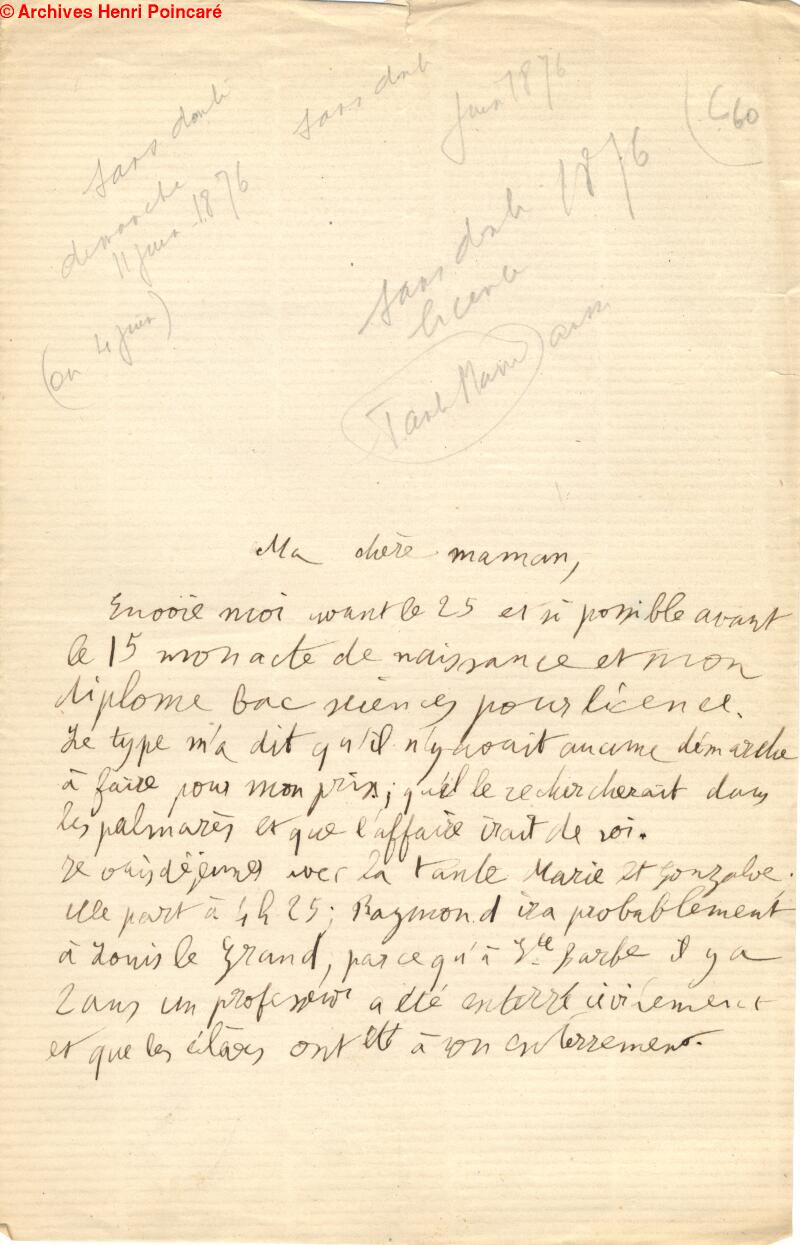 © Archives Henri Poincaré
sans doute
dimanche
11 juin 1876
(ou 4 juin)
sans doute
juin 1876
(C60
sans doute 1876
licence
Tante Marie aussi
Ma chère maman,
Envoie moi avant le 25 et si possible avant
le 15 mon acte de naissance et mon
diplome bac sciences pour licence.
Le type m'a dit qu'il n'y avait aucune démarche
à faire pour mon prix; qu'il le rechercherait dans
les palmarès et que l'affaire irait de soi.
Je vais déjeuner avec la tante Marie et Gonzalve.
elle part à 4h 25; Raymond ira probablement
à Louis le Grand, parce qu'à Ste Barbe il y a
2 ans un professeur a été enterré civilement
et que les élèves ont été à son enterrement.